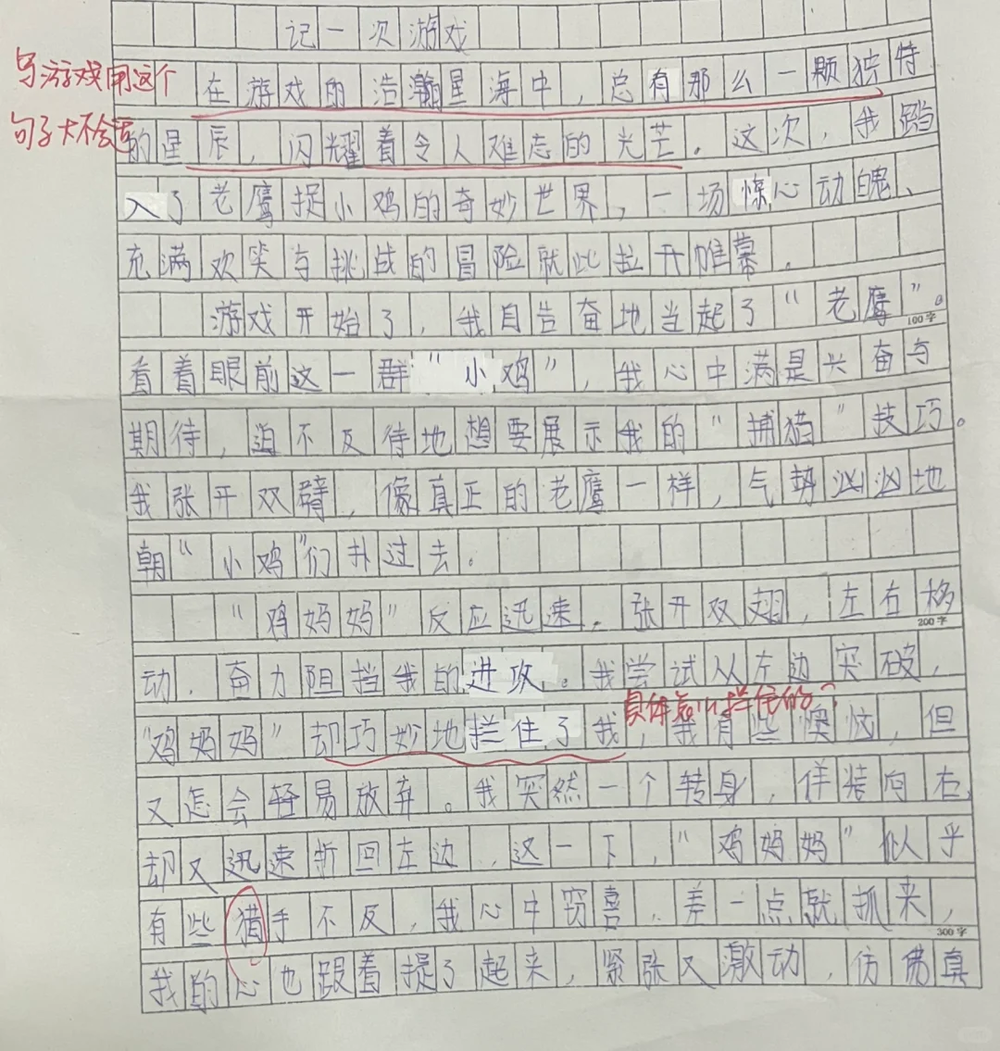 记一次游戏
写游戏用这个
在游戏的浩瀚星海中，总有那么一颗独特
句子大不合适
的星辰，闪耀着令人难忘的光芒。这次，我踏
入了老鹰捉小鸡的奇妙世界，一场惊心动魄、
充满欢笑与挑战的冒险就此拉开帷幕。
游戏开始了，我自告奋地当起了“老鹰”。
100字
看着眼前这一群“小鸡”，我心中满是兴奋与
期待，迫不及待地想要展示我的“捕猎”技巧。
我张开双臂，像真正的老鹰一样，气势汹汹地
朝“小鸡”们扑过去。
“鸡妈妈”反应迅速，张开双翅，左右移
200字
动，奋力阻挡我的进攻。我尝试从左边突破，
具体怎么拦住的？
“鸡妈妈”却巧妙地拦住了我，我有些懊恼，但
又怎会轻易放弃。我突然一个转身，佯装向右，
却又迅速折回左边，这一下，“鸡妈妈”似乎
有些猎手不及，我心中窃喜，差一点就抓来，
300字
我的心也跟着提了起来，紧张又激动，仿佛真